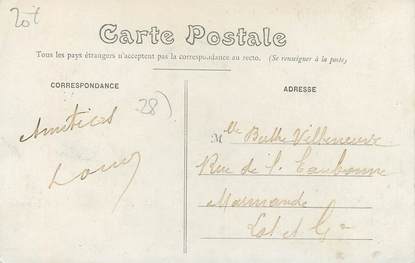 Carte Postale
Tous les pays étrangers n'acceptent pas la correspondance au recto. (Se renseigner à la poste)
CORRESPONDANCE
ADRESSE
28)
Amitiés
Louis
Mlle Berthe Villeneuve
Rue de l'
Marmande
Lot et Gne